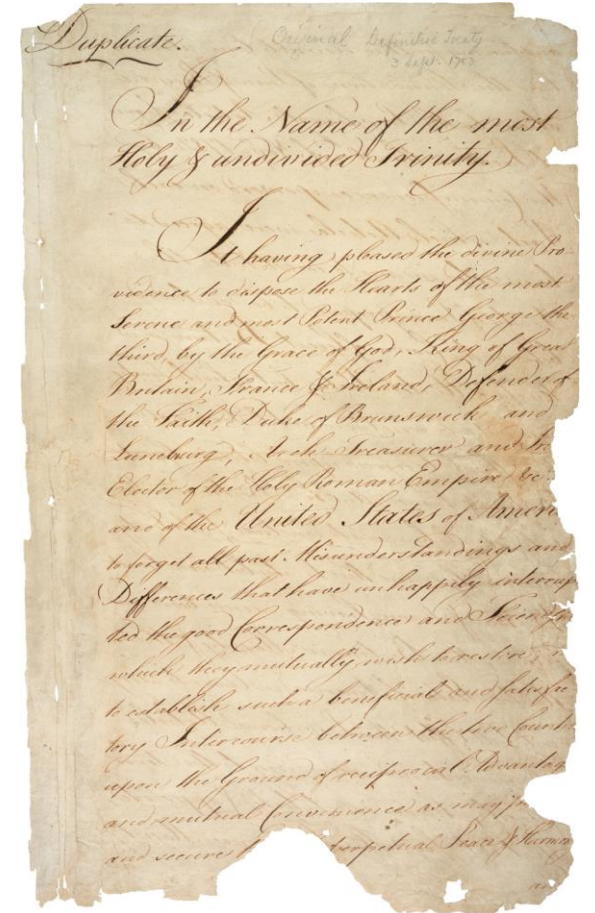 Duplicate.
Original Definitive Treaty
3 Sept. 1783
In the Name of the most
Holy & undivided Trinity.
It having pleased the divine Pro-
vidence to dispose the Hearts of the most
Serene and most Potent Prince George the
third, by the Grace of God, King of Great
Britain, France & Ireland, Defender of
the Faith, Duke of Brunswick and
Luneburg, Arch Treasurer and
Elector of the Holy Roman Empire &c.
and of the United States of Ameri
to forget all past Misunderstandings and
Differences that have unhappily interrup
ted the good Correspondence and Friendship
which they mutually wish to restore;
to establish such a beneficial and satisfac
tory Intercourse between the two Countr
upon the Ground of reciprocal Advantag
and mutual Convenience as may
and secure perpetual Peace & Harmon
an